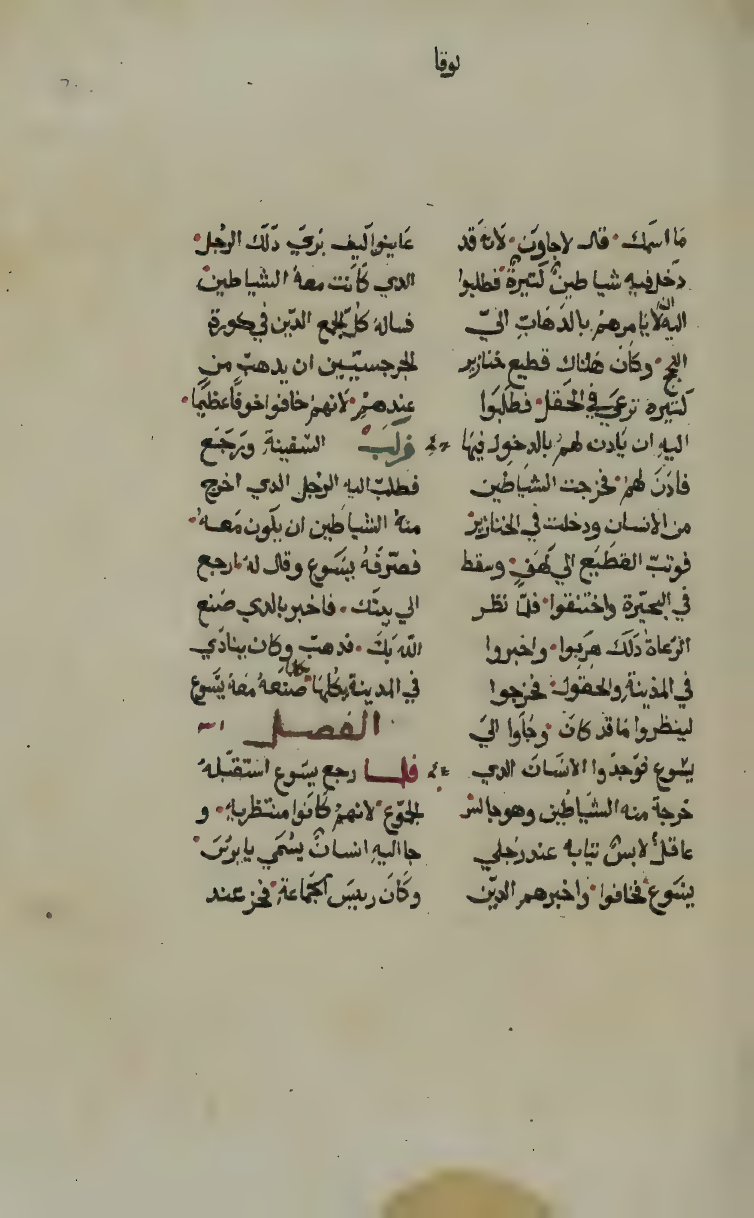 لوقا
ما اسمك. قال لاجاون. لانه قد
دخل فيه شياطين كتيرة فطلبوا
اليه الا يامرهم بالدهاب الي
اللجج. وكان هناك قطيع خنازير
كتيرة ترعي في الحقل. فطلبوا
اليه ان يادن لهم بالدخول فيها
فادن لهم. فخرجت الشياطين
من الانسان ودخلت في الخنازير
فوتب القطيع الي كهف. وسقط
في البحيرة واختنقوا. فلما نظر
الرعاة دلك هربوا. واخبروا
في المدينة والحقول. فخرجوا
لينظروا ما قد كان. وجاوا الي
يسوع فوجدوا الانسان الدي
خرجة منه الشياطين وهو جالس
عاقلاً لابس تيابه عند رجلي
يسوع فخافوا. واخبرهم الدين
عاينوا كيف بري دلك الرجل.
الدي كانت معه الشياطين.
فساله كل الجمع الدين في كورة
الجرجسيين ان يدهب من
عندهم. لانهم خافوا خوفاً عظيماً.
فركب السفينة ورجع
فطلب اليه الرجل الدي اخرج
منه الشياطين ان يكون معه.
فصرفه يسوع وقال له ارجع
الي بيتك. فاخبر بالدي صنع
الله بك. فدهب وكان ينادي
في المدينة كلها بكلما صنعه معه يسوع
الفصل
فلما رجع يسوع استقبله
الجموع لانهم كانوا منتظريه. و
جا اليه انسان يسمي يايرس
وكان رييس الجماعة. فخر عند